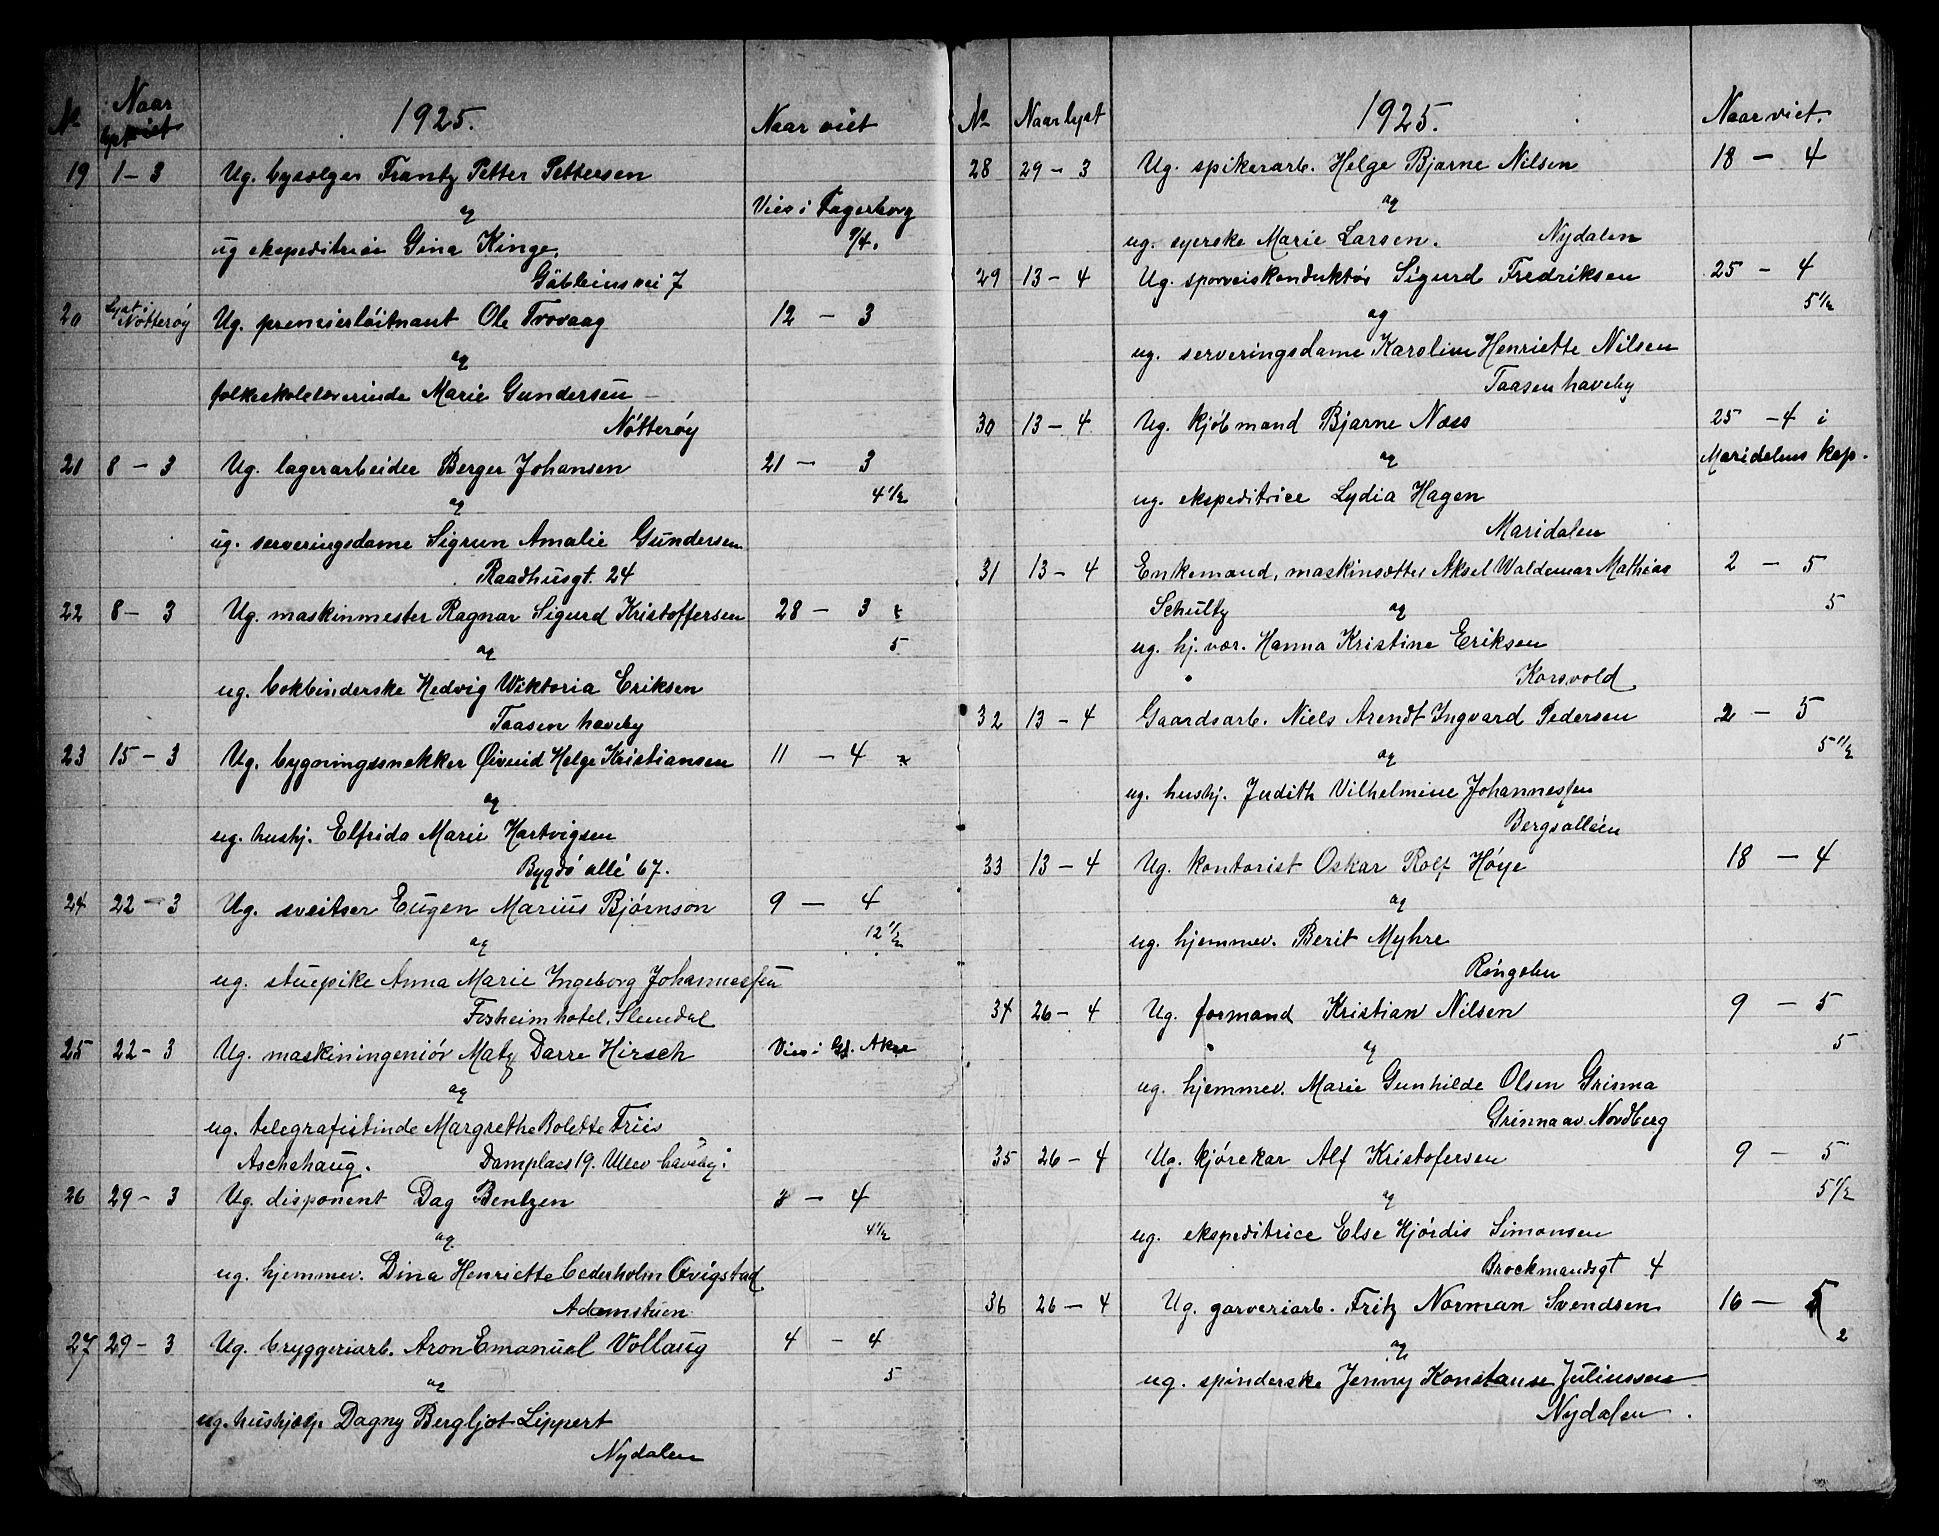 No Naar lyst viet 1925. Naar viet
19 1-3 Ug. bysælger Frantz Petter Pettersen
og Vies i Fagerborg
ug ekspeditrice Gina Kinge. 9/4.
Göbleinsvei 7
20 Lyst i Nötteröy Ug. premierlöitnant Ole Trovaag 12 - 3
og
folkeskolelærerinde Marie Gundersen
Nötteröy
21 8 - 3 Ug. lagerarbeider Berger Johansen 21 - 3
og 4 1/2
ug. serveringsdame Sigrun Amalie Gundersen
Raadhusgt. 24
22 8 - 3 Ug. maskinmester Ragnar Sigurd Kristoffersen 28 - 3
og 5
ug. bokbinderske Hedvig Wiktoria Eriksen
Taasen haveby
23 15 - 3 Ug. bygningssnekker Øivind Helge Kristiansen 11 - 4
og
ug. hushj. Elfrida Marie Hartvigsen
Bygdö allé 67.
24 22 - 3 Ug. sveitser Eugen Marius Bjørnson 9 - 4
og 12 1/2
ug. stuepike Anna Marie Ingeborg Johannessen
Foxheim hotel, Slemdal
25 22 - 3 Ug. maskiningeniör Matz Darre Hirsch Vies i Gl. Aker
og
ug. telegrafistinde Margrethe Bolette Friis
Aschehaug. Damplads 19. Ulev. haveby.
26 29 - 3 Ug. disponent Dag Bentzen 3 - 4
og 4 1/2
ug. hjemmev. Dina Henriette Cederholm Qvigstad
Adamstuen
27 29 - 3 Ug. bryggeriarb. Aron Emanuel Vollaug 4 - 4
og 5
ug. hushjælp Dagny Bergljot Lippert
Nydalen
No Naar lyst 1925. Naar viet.
28 29 - 3 Ug. spikerarb. Helge Bjarne Nilsen 18 - 4
og
ug. syerske Marie Larsen. Nydalen
29 13 - 4 Ug. sporveiskonduktör Sigurd Fredriksen 25 - 4
og 5 1/2
ug. serveringsdame Karoline Henriette Nilsen
Taasen haveby
30 13 - 4 Ug. kjöbmand Bjarne Næss 25 - 4 i
og Maridalens kap.
ug. ekspeditrice Lydia Hagen
Maridalen
31 13 - 4 Enkemand, maskinsætter Aksel Waldemar Mathias 2 - 5
Schultz og 5
ug. hj.vær. Hanna Kristine Eriksen
Korsvold
32 13 - 4 Gaardsarb. Niels Arendt Ingvard Pedersen 2 - 5
og 5 1/2
ug. hushj. Judith Vilhelmine Johannessen
Bergsalléen
33 13 - 4 Ug. kontorist Oskar Rolf Høye 18 - 4
og
ug. hjemmev. Berit Myhre
Ringebu
34 26 - 4 Ug. formand Kristian Nilsen 9 - 5
og 5
ug. hjemmev. Marie Gunhilde Olsen Grinna
Grinna av. Nordberg
35 26 - 4 Ug. kjörekar Alf Kristofersen 9 - 5
og 5 1/2
ug. ekspeditrice Else Hjördis Simonsen
Brockmandsgt 4
36 26 - 4 Ug. garveriarb. Fritz Norman Svendsen 16 - 5
og 2
ug. spinderske Jenny Konstanse Juliussen
Nydalen.